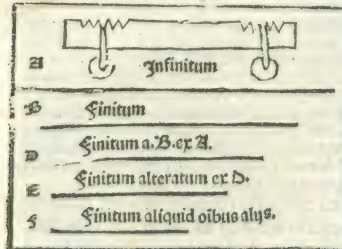 A Infinitum
B Finitum
D Finitum a.B.ex A.
E Finitum alteratum ex D.
F Finitum aliquid oibus alijs.